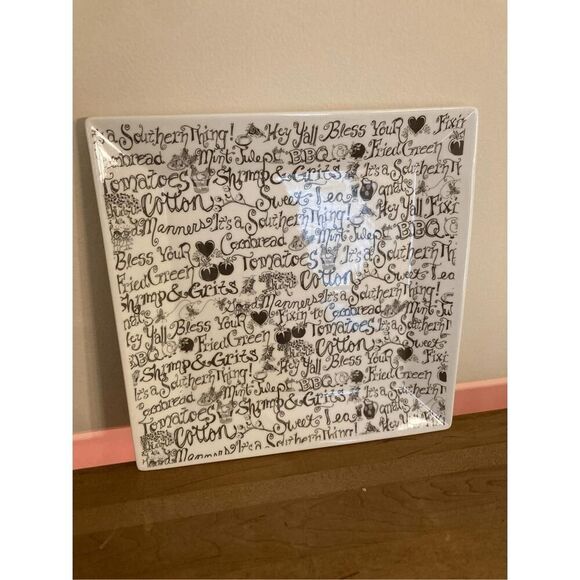 It's a Southern Thing! Hey Y'all Bless Your Fixin
Cornbread Mint Julep BBQ Fried Green
Tomatoes Shrimp & Grits It's a Southern Th
Cotton Sweet Tea Hey Y'all Fixi
Manners It's a Southern Thing! Mint Julep BBQ
Bless Your Cornbread It's a Southern
Fried Green Tomatoes Cotton Sweet Tea
Shrimp & Grits Manners It's a Southern Thing!
Hey Y'all Bless Your Fixin to Cornbread Mint Jul
Fried Green Tomatoes It's a Southern T
BBQ Shrimp & Grits Cotton Sweet
It's a Southern Thing! Hey Y'all Bless Your Fixi
Cornbread Mint Julep BBQ Fried Green
Tomatoes Shrimp & Grits It's a Southern
Cotton Sweet Tea Hey Y'all
Manners It's a Southern Thing!